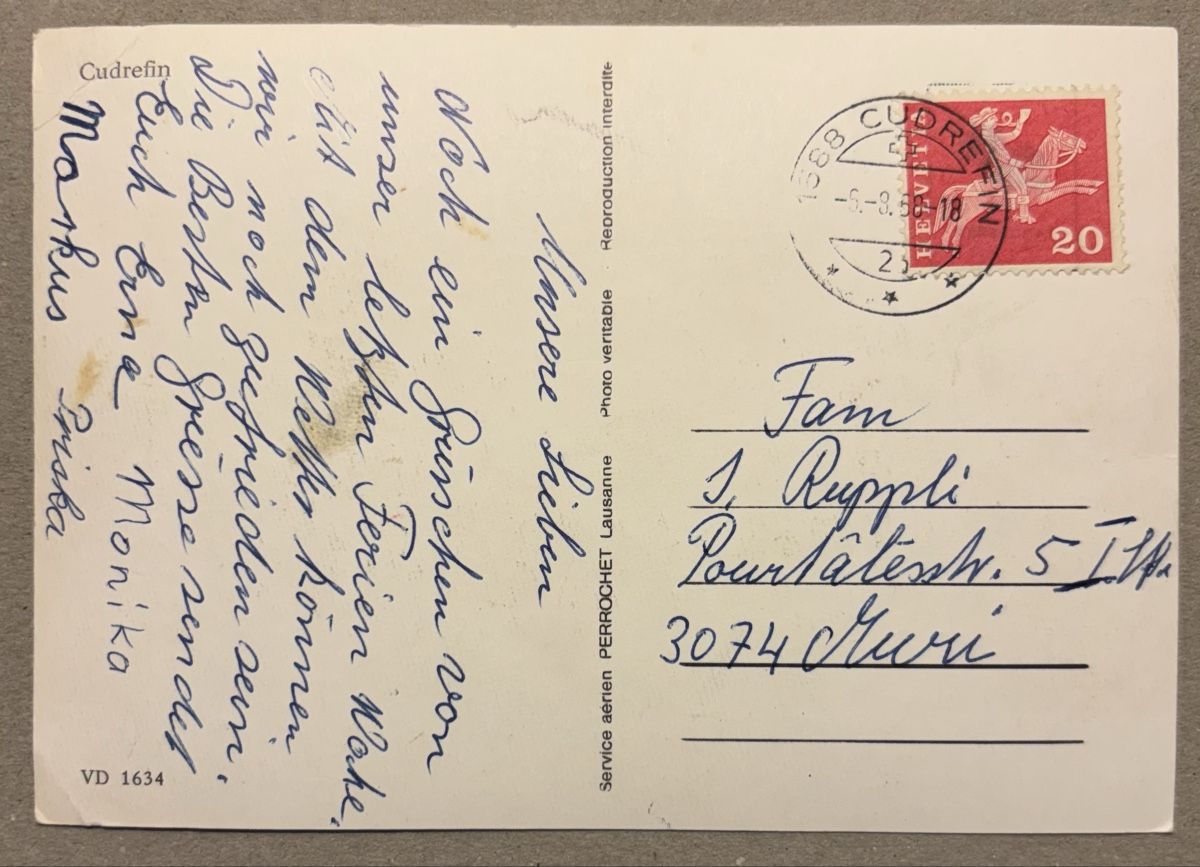 Cudrefin
Unsere Lieben
Noch ein Grüschen von
unser letzten Ferien Woche.
Mit dem Wetter können
wir noch zufrieden sein.
Die Besten Grüsse sendet
Euch Erna Monika
Markus Priska
VD 1634
Service aérien PERROCHET Lausanne Photo veritable Reproduction interdite
1588 CUDREFIN
-6.-8.68-18
HELVETIA
20
Fam
S. Ruppli
Pourtalèsstr. 5
3074 Muri